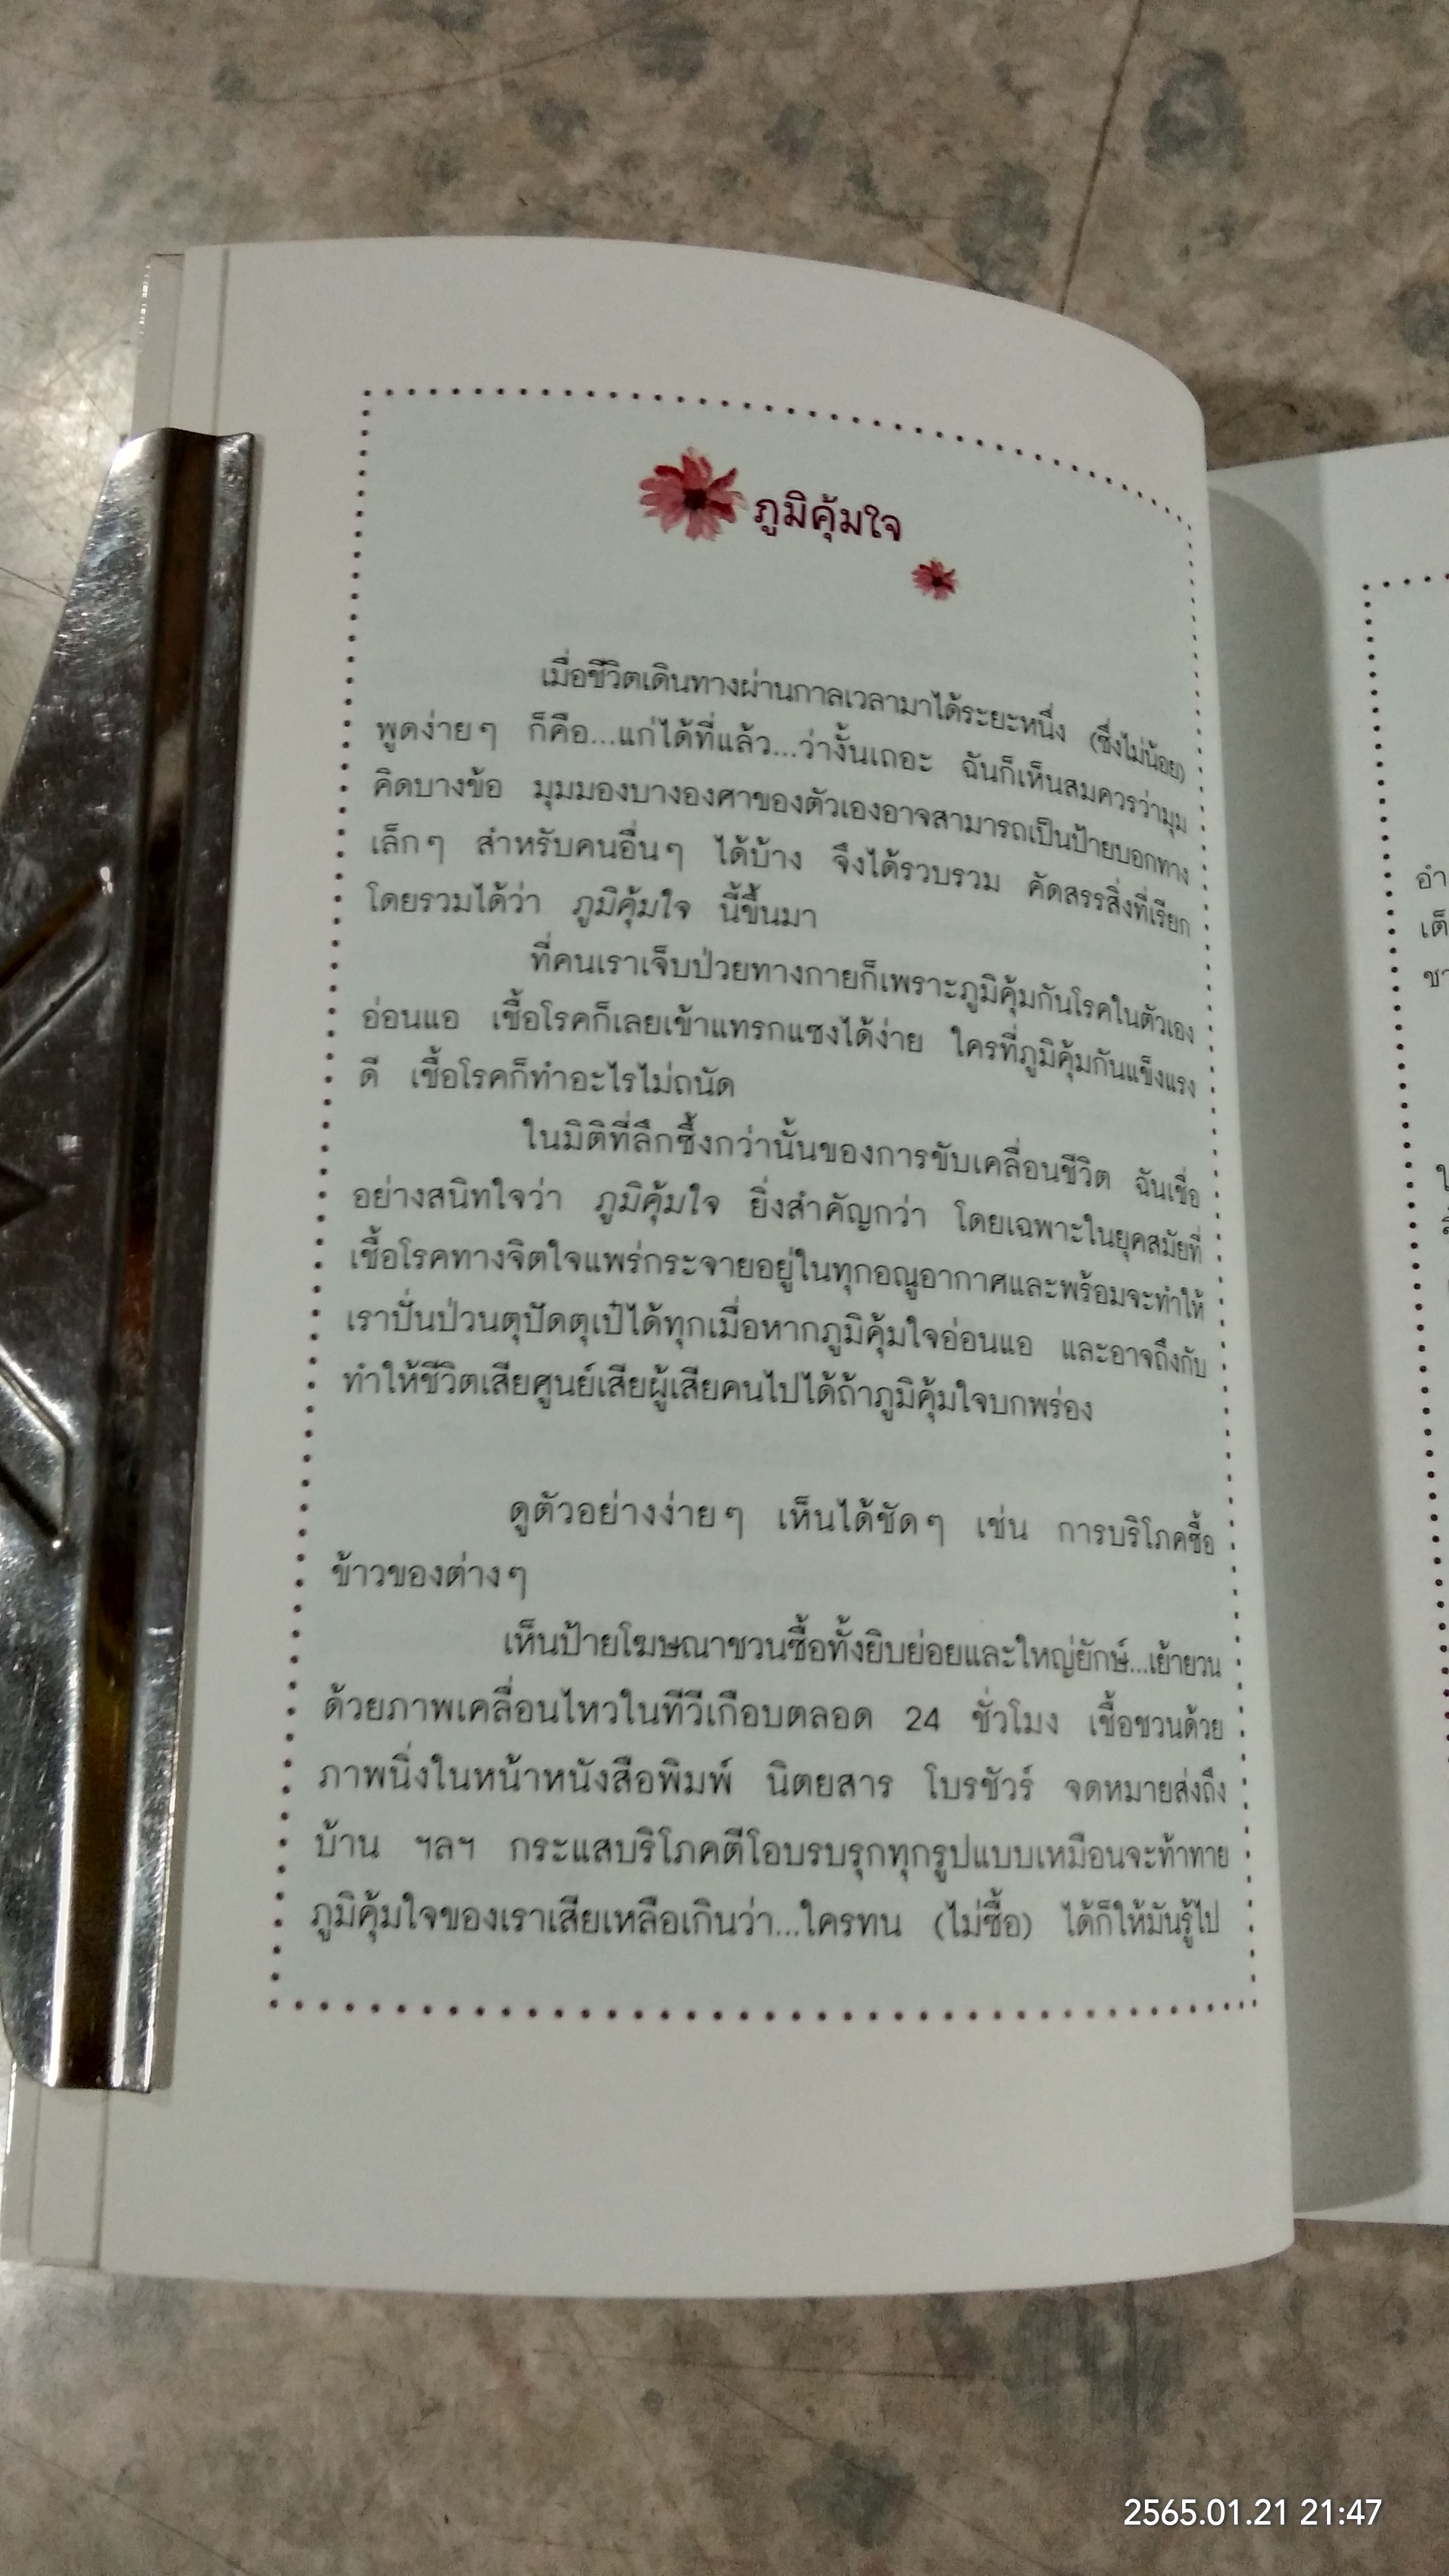 ภูมิคุ้มใจ
เมื่อชีวิตเดินทางผ่านกาลเวลามาได้ระยะหนึ่ง (ซึ่งไม่น้อย)
พูดง่ายๆ ก็คือ...แก่ได้ที่แล้ว...ว่างั้นเถอะ ฉันก็เห็นสมควรว่ามุม
คิดบางข้อ มุมมองบางองศาของตัวเองอาจสามารถเป็นป้ายบอกทาง
เล็กๆ สำหรับคนอื่นๆ ได้บ้าง จึงได้รวบรวม คัดสรรสิ่งที่เรียก
โดยรวมได้ว่า ภูมิคุ้มใจ นี้ขึ้นมา
ที่คนเราเจ็บป่วยทางกายก็เพราะภูมิคุ้มกันโรคในตัวเอง
อ่อนแอ เชื้อโรคก็เลยเข้าแทรกแซงได้ง่าย ใครที่ภูมิคุ้มกันแข็งแรง
ดี เชื้อโรคก็ทำอะไรไม่ถนัด
ในมิติที่ลึกซึ้งกว่านั้นของการขับเคลื่อนชีวิต ฉันเชื่อ
อย่างสนิทใจว่า ภูมิคุ้มใจ ยิ่งสำคัญกว่า โดยเฉพาะในยุคสมัยที่
เชื้อโรคทางจิตใจแพร่กระจายอยู่ในทุกอณูอากาศและพร้อมจะทำให้
เราปั่นป่วนตุปัดตุเป๋ได้ทุกเมื่อหากภูมิคุ้มใจอ่อนแอ และอาจถึงกับ
ทำให้ชีวิตเสียศูนย์เสียผู้เสียคนไปได้ถ้าภูมิคุ้มใจบกพร่อง
ดูตัวอย่างง่ายๆ เห็นได้ชัดๆ เช่น การบริโภคซื้อ
ข้าวของต่างๆ
เห็นป้ายโฆษณาชวนซื้อทั้งยิบย่อยและใหญ่ยักษ์...เย้ายวน
ด้วยภาพเคลื่อนไหวในทีวีเกือบตลอด 24 ชั่วโมง เชื้อชวนด้วย
ภาพนิ่งในหน้าหนังสือพิมพ์ นิตยสาร โบรชัวร์ จดหมายส่งถึง
บ้าน ฯลฯ กระแสบริโภคตีโอบรบรุกทุกรูปแบบเหมือนจะท้าทาย
ภูมิคุ้มใจของเราเสียเหลือเกินว่า...ใครทน (ไม่ซื้อ) ได้ก็ให้มันรู้ไป
อำ
เต็
ชา
ใ
2565.01.21 21:47